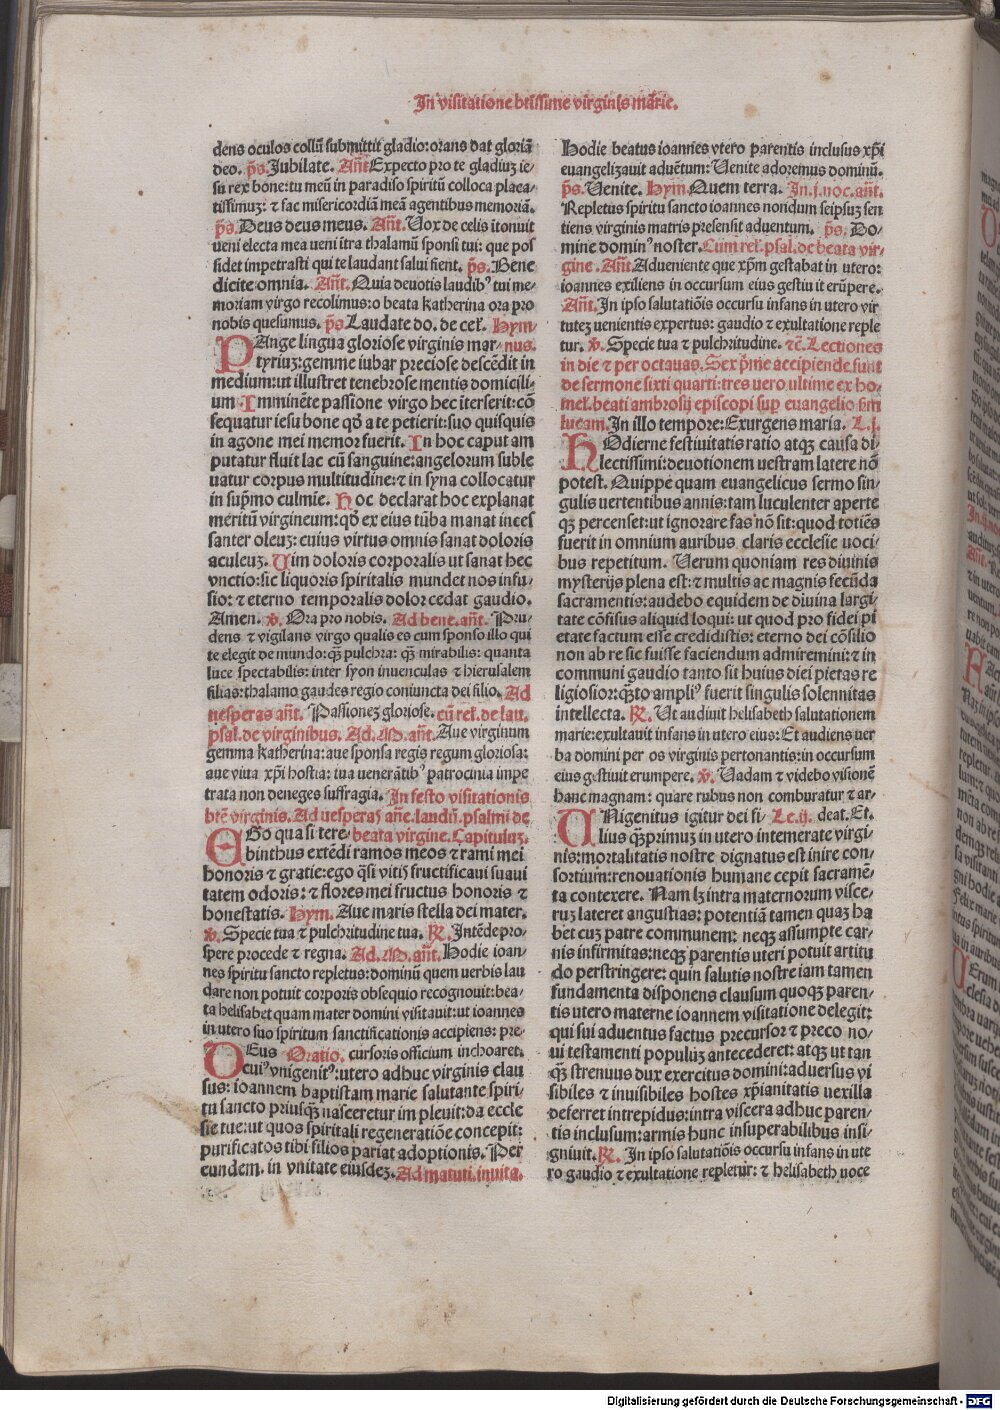 In visitatione btissime virginis marie.
dens oculos collū submittit gladio: orans dat gloriā
deo. p̄s. Jubilate. Añt Expecto pro te gladiuꝫ ie-
su rex bone: tu meū in paradiso spiritū colloca placa-
tissimuꝫ: ⁊ fac misericordiā meā agentibus memoriā.
p̄s. Deus deus meus. Añt. Vox de celis ītonuit
veni electa mea veni ītra thalamū sponsi tui: que pos
sidet impetrasti qui te laudant salui fient. p̄s. Bene
dicite omnia. Añt. Quia deuotis laudibꝰ tui me-
moriam virgo recolimus: o beata katherina ora pro
nobis quesumus. p̄s. Laudate do. de cel̄. Hym-
PAnge lingua gloriose virginis mar-nus.
tyriuꝫ: gemme iubar preciose descēdit in
medium: ut illustret tenebrose mentis domicili-
um. Imminēte passione virgo hec īterserit: cō
sequatur iesu bone qd̄ a te petierit: suo quisquis
in agone mei memor fuerit. In hoc caput am
putatur fluit lac cū sanguine: angelorum suble
uatur corpus multitudine: ⁊ in syna collocatur
in sup̄mo culmīe. Hoc declarat hoc explanat
meritū virgineum: qd̄ ex eius tūba manat inces
santer oleuꝫ: cuius virtus omnis sanat doloris
aculeuꝫ. Vim doloris corporalis ut sanat hec
vnctio: sic liquoris spiritalis mundet nos infu-
sio: ⁊ eterno temporalis dolor cedat gaudio.
Amen. ꝟ. Ora pro nobis. Ad bene. añt. Pru-
dens ⁊ vigilans virgo qualis es cum sponso illo qui
te elegit de mundo: qꝫ̄ pulchra: qꝫ̄ mirabilis: quanta
luce spectabilis: inter syon iuuenculas ⁊ hierusalem
filias: thalamo gaudes regio coniuncta dei filio. Ad
vesperas añt. Passioneꝫ gloriose. cū rel̄. de lau.
psal. de virginibus. Ad. M. añt. Aue virginum
gemma katherina: aue sponsa regis regum gloriosa:
aue viua xp̄i hostia: tua venerātibꝰ patrocinia impe
trata non deneges suffragia. In festo visitationis
btē virginis. Ad vesperas añe. laudū. psalmi de
EGo quasi tere-beata virgine. Capituluꝫ.
binthus extēdi ramos meos ⁊ rami mei
honoris ⁊ gratie: ego q̄si vitis fructificaui suaui
tatem odoris: ⁊ flores mei fructus honoris ⁊
honestatis. Hym. Aue maris stella dei mater.
ꝟ. Specie tua ⁊ pulchritudine tua. ℟. Intēde pro-
spere procede ⁊ regna. Ad. M. añt. Hodie ioan-
nes spiritu sancto repletus: dominū quem verbis lau
dare non potuit corporis obsequio recognouit: bea-
ta helisabet quam mater domini visitauit: ut ioannes
in utero suo spiritum sanctificationis accipiens: pre-
DEus Oratio. cursoris officium inchoaret.
cuiꝰ vnigenitꝰ: utero adhuc virginis clau
sus: ioannem baptistam marie salutante spiri-
tu sancto priusqꝫ̄ nasceretur impleuit: da eccle
sie tue: ut quos spiritali regeneratiōe concepit:
purificatos tibi filios pariat adoptionis. Per
eundem. in vnitate eiusdeꝫ. Ad matuti. inuita.
Hodie beatus ioannes vtero parentis inclusus xp̄i
euangelizauit aduētum: Venite adoremus dominū.
p̄s. Venite. Hym. Quem terra. In. j. noc. añt.
Repletus spiritu sancto ioannes nondum seipsuꝫ sen
tiens virginis matris presensit aduentum. p̄s. Do-
mine dominꝰ noster. Cum rel̄. psal. de beata vir-
gine. Añt. Adueniente que xp̄m gestabat in utero:
ioannes exiliens in occursum eius gestiuit erūpere.
Añt. In ipso salutatiōis occursu infans in utero vir
tuteꝫ uenientis expertus: gaudio ⁊ exultatione reple
tur. ꝟ. Specie tua ⁊ pulchritudine. ⁊c̄. Lectiones
in die ⁊ per octauas. Sex p̄me accipiende sunt
de sermone sixti quarti: tres vero ultime ex ho-
mel. beati ambrosij episcopi sup euangelio sm
lucam. In illo tempore: Exurgens maria. L. j.
HOdierne festiuitatis ratio atqꝫ causa di
lectissimi: deuotionem uestram latere nō
potest. Quippe quam euangelicus sermo sin-
gulis uertentibus annis: tam luculenter aperte
qꝫ percenset: ut ignorare fas nō sit: quod totiēs
fuerit in omnium auribus claris ecclesie uoci-
bus repetitum. Verum quoniam res diuinis
mysterijs plena est: ⁊ multis ac magnis fecūda
sacramentis: audebo equidem de diuina largi-
tate cōfisus aliquid loqui: ut quod pro fidei pi
etate factum esse credidistis: eterno dei cōsilio
non ab re sic fuisse faciendum admiremini: ⁊ in
communi gaudio tanto sit huius diei pietas re
ligiosior: qꝫ̄to ampliꝰ fuerit singulis solennitas
intellecta. ℟. Ut audiuit helisabeth salutationem
marie: exultauit infans in utero eius: Et audiens uer
ba domini per os virginis pertonantis: in occursum
eius gestiuit erumpere. ꝟ. Vadam ⁊ videbo visionē
hanc magnam: quare rubus non comburatur ⁊ ar-
UNigenitus igitur dei fi- Le. ij. deat. Et.
lius qꝫ̄primuꝫ in utero intemerate virgi-
nis: mortalitatis nostre dignatus est inire con-
sortium: renouationis humane cepit sacramē-
ta contexere. Nam lꝫ intra maternorum visce-
ruꝫ lateret angustias: potentiā tamen quaꝫ ha
bet cuꝫ patre communem: neqꝫ assumpte car-
nis infirmitas: neqꝫ parentis uteri potuit artitu
do perstringere: quin salutis nostre iam tamen
fundamenta disponens clausum quoqꝫ paren-
tis utero materne ioannem visitatione delegit:
qui sui aduentus factus precursor ⁊ preco no-
ui testamenti populuꝫ antecederet: atqꝫ ut tan
qꝫ̄ strenuus dux exercitus domini: aduersus vi
sibiles ⁊ inuisibiles hostes xp̄ianitatis uexilla
deferret intrepidus: intra viscera adhuc paren-
tis inclusum: armis hunc insuperabilibus insi-
gniuit. ℟. In ipso salutatiōis occursu infans in ute
ro gaudio ⁊ exultatione repletur: ⁊ helisabeth uoce
Digitalisierung gefördert durch die Deutsche Forschungsgemeinschaft - DFG